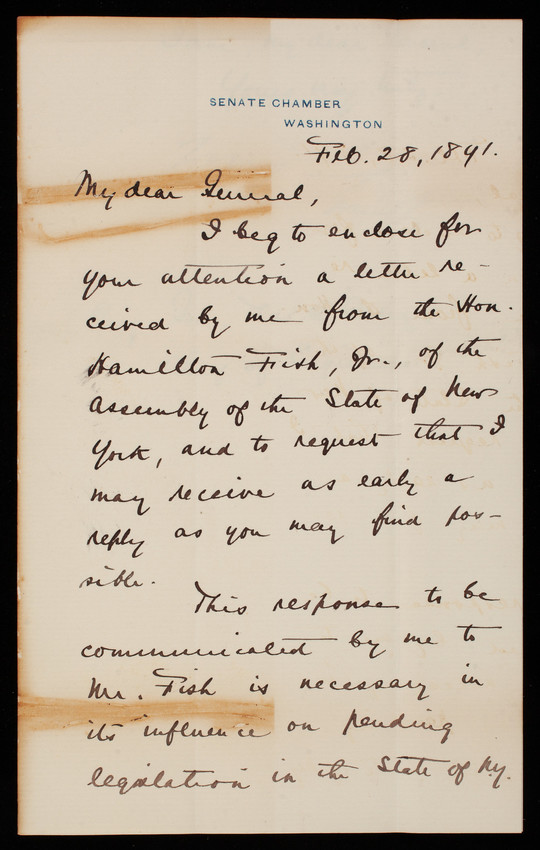 SENATE CHAMBER
WASHINGTON
Feb. 28, 1891.
My dear General,
I beg to enclose for
your attention a letter re-
ceived by me from the Hon.
Hamilton Fish, Jr., of the
Assembly of the State of New
York, and to request that I
may receive as early a
reply as you may find pos-
sible.
This response to be
communicated by me to
Mr. Fish is necessary in
its influence on pending
legislation in the State of N.Y.